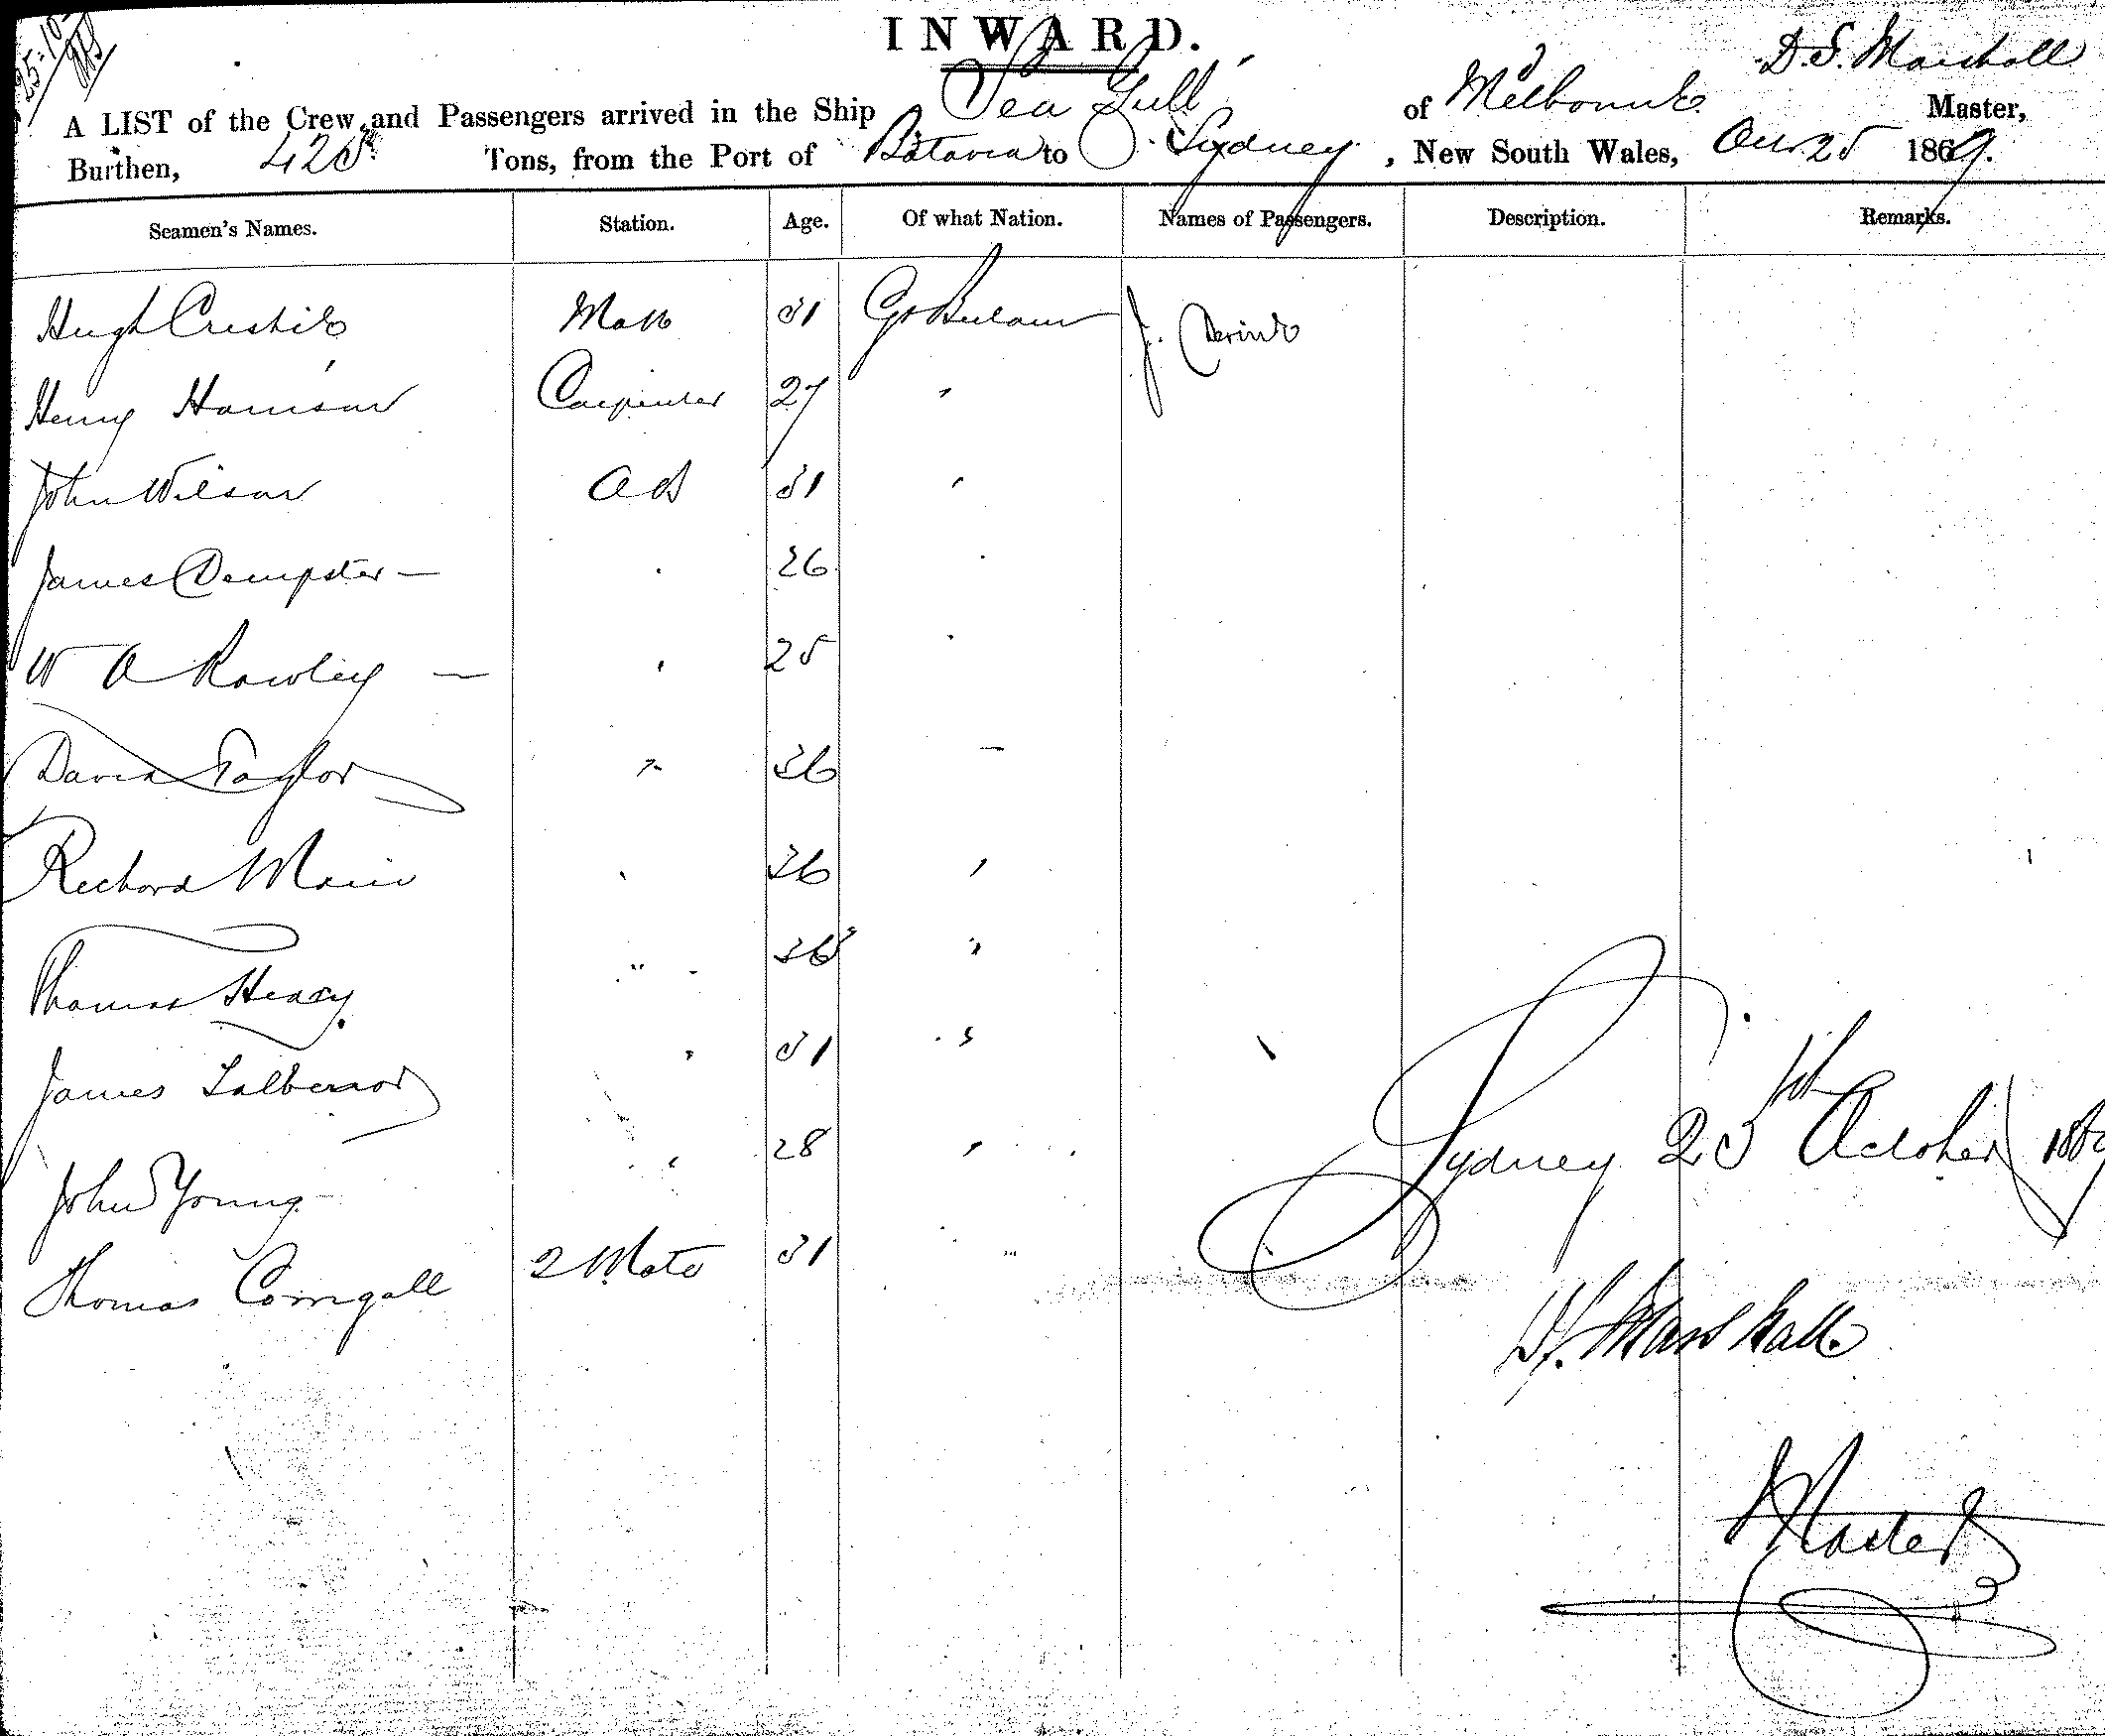 25-10
INWARD.
D. S. Marshall
A LIST of the Crew and Passengers arrived in the Ship Sea Gull of Melbourne Master,
Burthen, 425 Tons, from the Port of Batavia to Sydney, New South Wales, Octr 25 1869.
Seamen's Names. Station. Age. Of what Nation. Names of Passengers. Description. Remarks.
Hugh Mate 31 Gt Britain J.
Henry Harrison Carpenter 27 "
John Wilson AB 31 "
James Dempster — " 26 "
W A Rowley — " 25 "
David Taylor " 36 "
Richard " 36 "
Thomas " 36 "
James " 31 "
John Young " 28 "
Thomas 2 Mate 31 "
Sydney 25th October 1869
D S. Marshall
Master